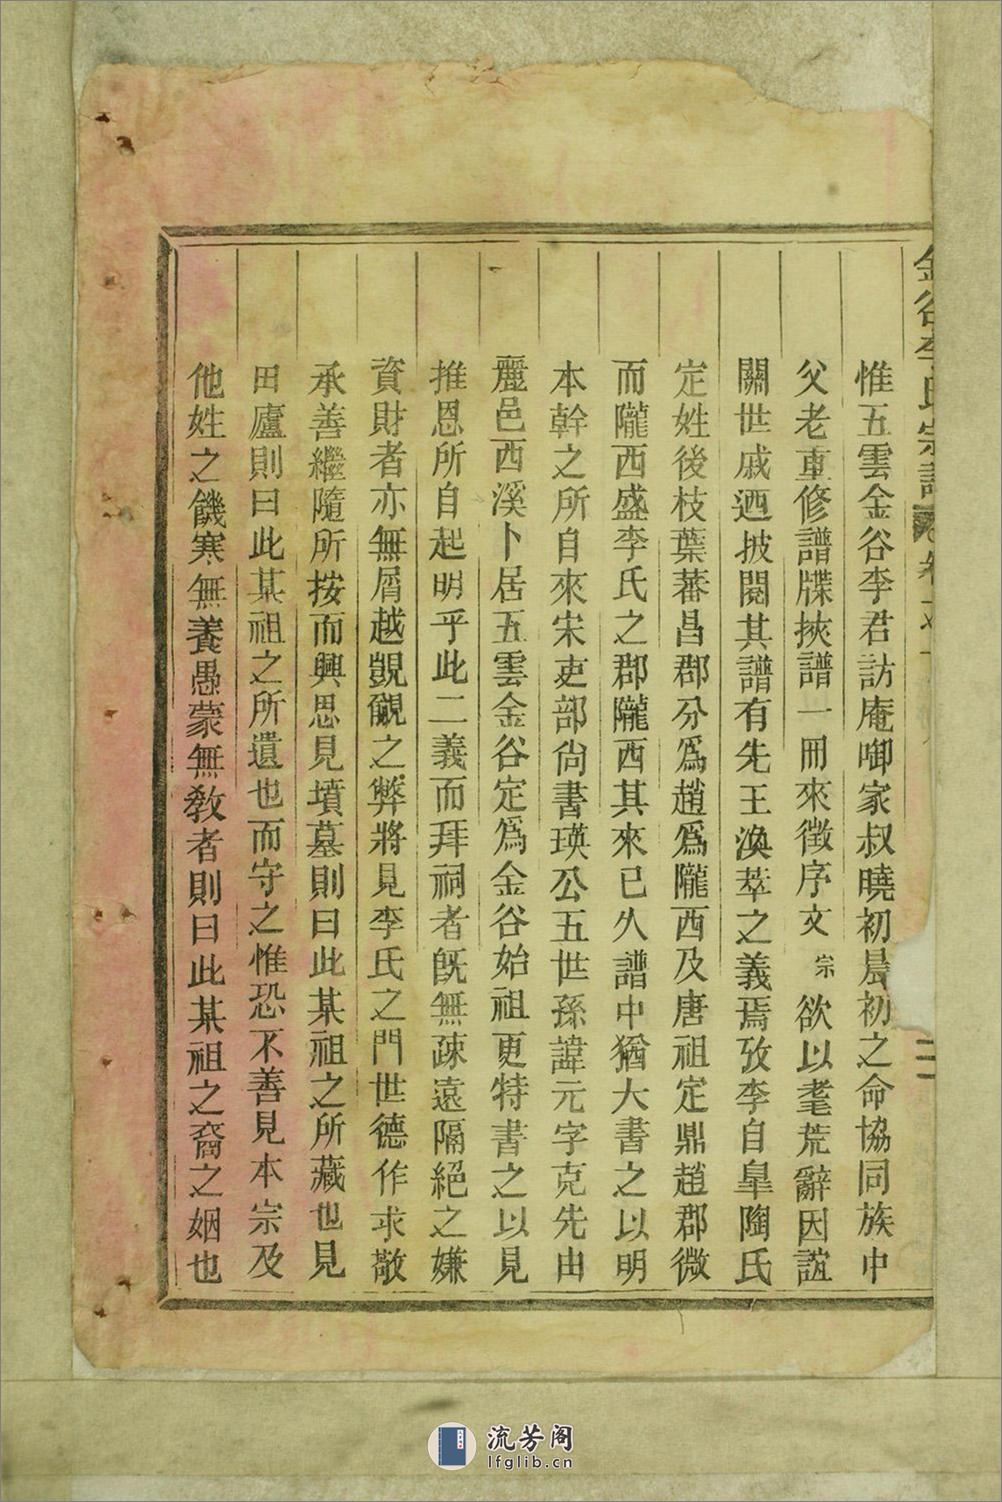 金谷李氏宗譜
惟五雲金谷李君訪庵啣家叔曉初晨初之命協同族中
父老重修譜牒挾譜一冊來徵序文宗欲以耄荒辭因誼
關世戚迺披閱其譜有先王渙萃之義焉攷李自臯陶氏
定姓後枝葉蕃昌郡分爲趙爲隴西及唐祖定鼎趙郡微
而隴西盛李氏之郡隴西其來已久譜中猶大書之以明
本幹之所自來宋吏部尙書瑛公五世孫諱元字克先由
麗邑西溪卜居五雲金谷定爲金谷始祖更特書之以見
推恩所自起明乎此二義而拜祠者旣無疎遠隔絕之嫌
資財者亦無屑越覬覦之弊將見李氏之門世德作求敬
承善繼隨所按而興思見墳墓則曰此某祖之所藏也見
田廬則曰此某祖之所遺也而守之惟恐不善見本宗及
他姓之饑寒無養愚蒙無敎者則曰此某祖之裔之姻也
流芳阁
lfglib.cn